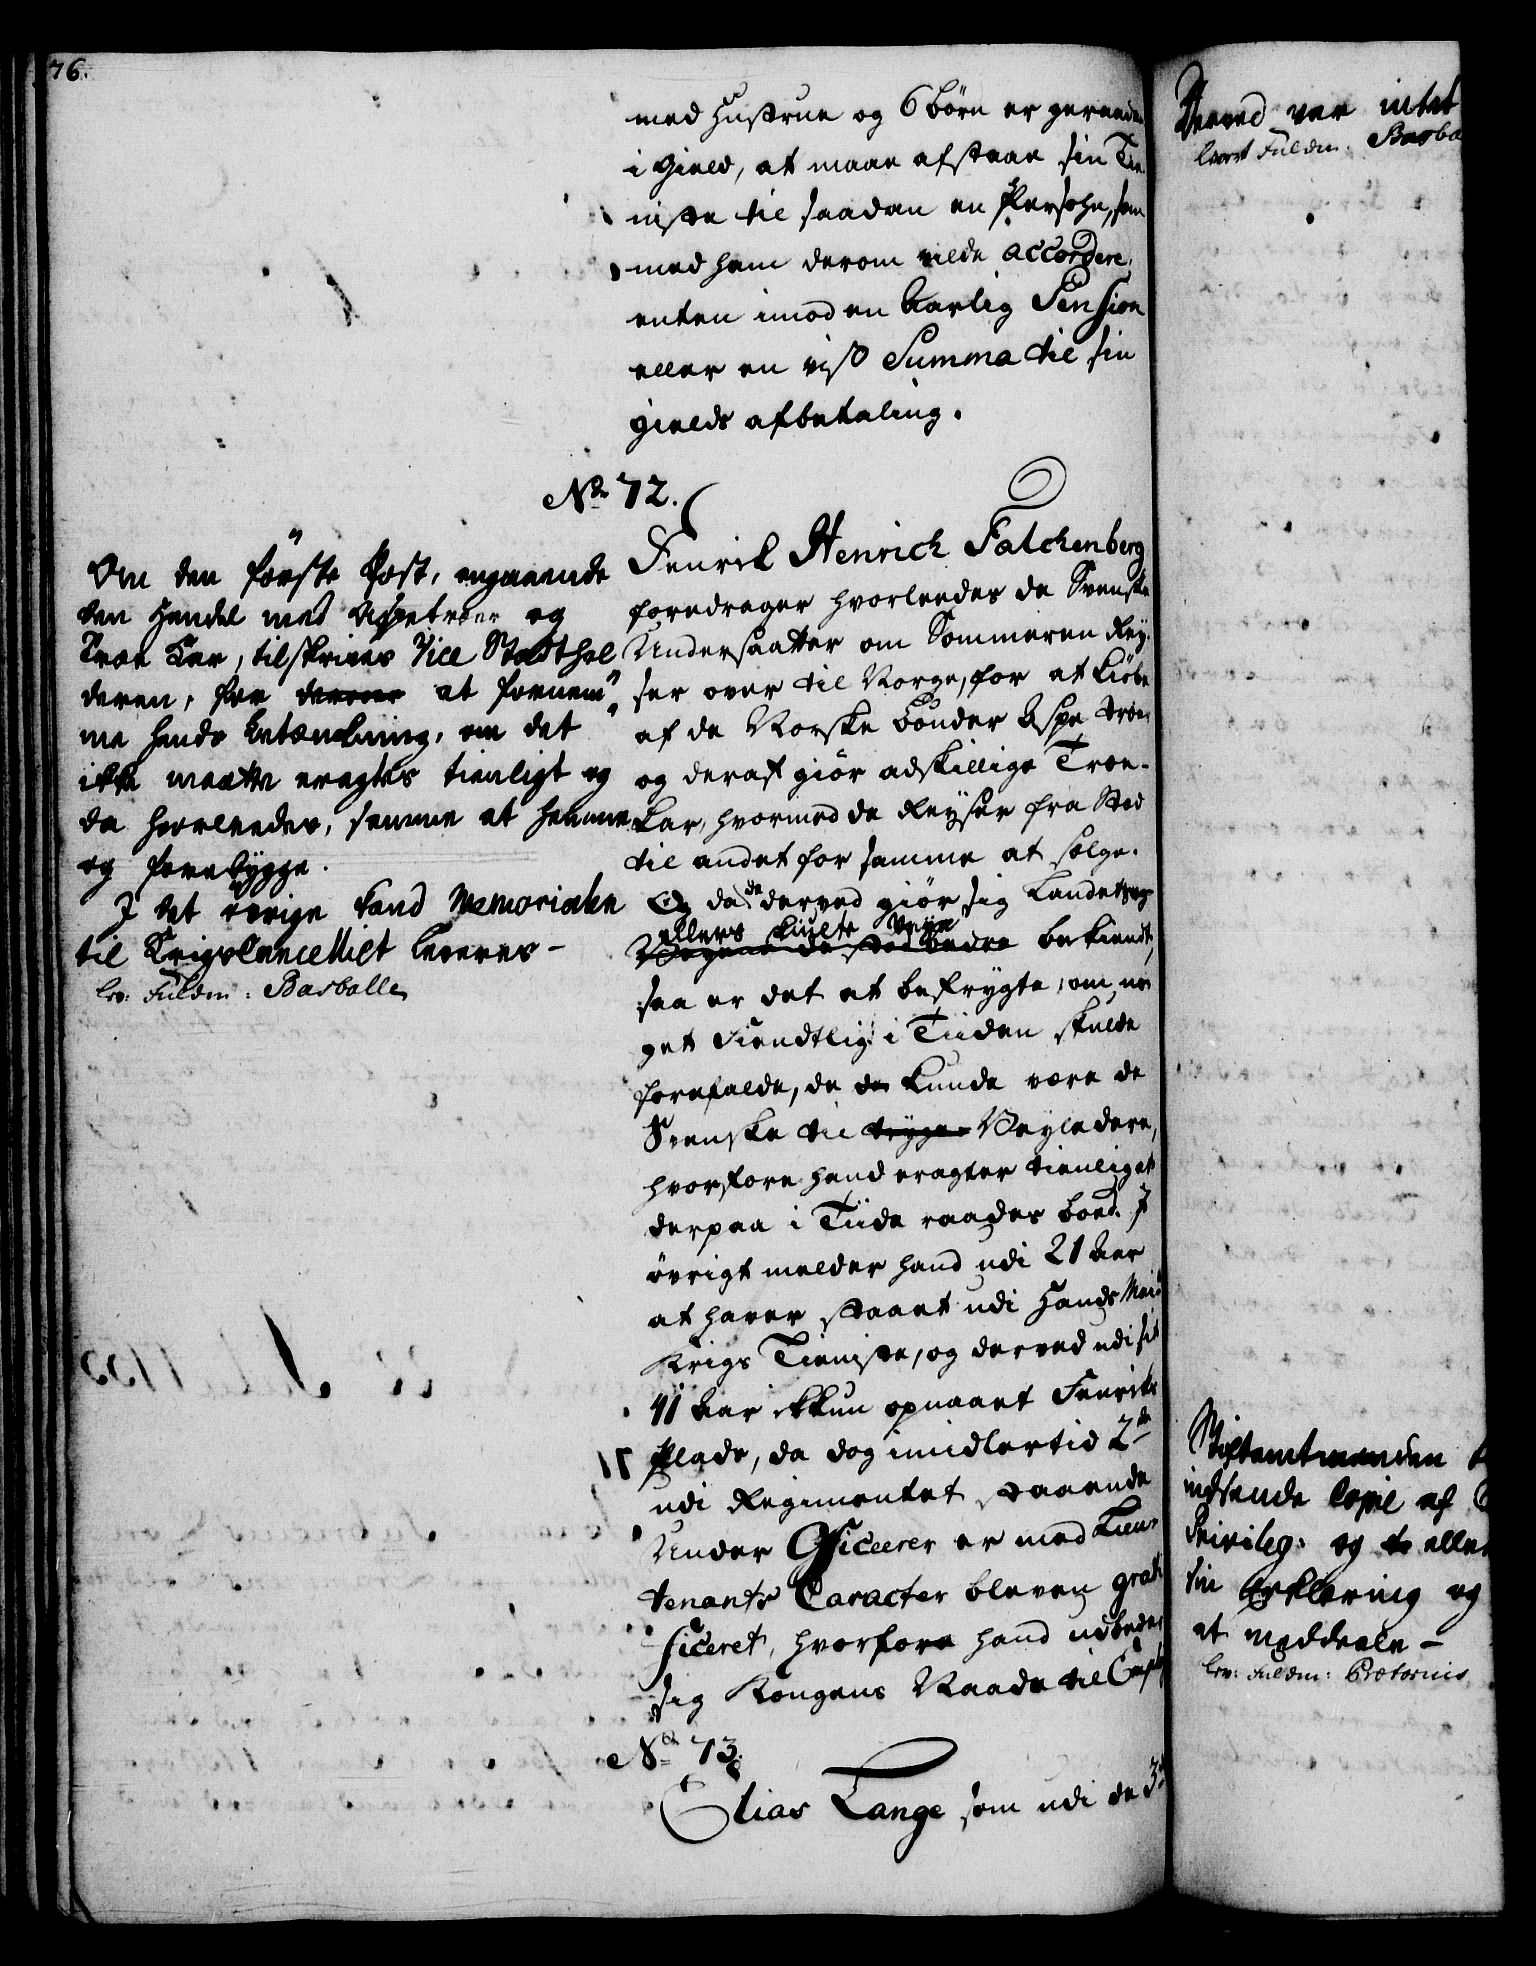 76.
med Hustrue og 6 börn er geraaden
i Gield, at maae afstaae sin Tie
niste til saadan en Persohn, som
med ham derom vilde accordere,
enten imod en Aarlig Pension
eller en viss Summa til sin
gields afbetaling.
No 72.
Fenrik Henrich Falchenberg
foredrager hvorleedes de Svenske
Undersaatter om Sommeren Rey-
ser over til Norge, for at Kiöbe
af de Norske bönder Aspe træer
og deraf giör adskillige Træe-
Kar, hvormed de Reyser fra Stæd
til andet for samme at sælge.
Og da de derved giör sig Landets
ellers Veye
bekiendt,
saa er det at befrygte, om no
get Fiendtligt i Tiiden skulde
forefalde, da de Kunde være de
Svenske til trygge Veyledere,
hvorfore hand eragter tienligst
derpaa i Tiide raades bood. I
övrigt melder hand udi 21 Aar
at haver staaet udi Hands May
Krigs Tieniste, og derved udi sit
41 Aar ikkun opnaaet Fenriks
Plads, da dog imidlertid 2de
udi Regimentet staaende
Under Officeerer er med Lieu-
tenants Caracter bleven grati
ficeret, hvorfore hand udbeder
sig Kongens Naade til
No 73.
Elias Lange som udi de 3de
Om den förste Post, angaaende
den Handel med Aspetræer og
Træe Kar, tilskrives Vice Stadthol
deren, for at fornem
me hands betænkning, om det
ikke maatte eragtes tienligt og
da hvorleedes, samme at hemme
og forebygge.
I det övrige kand Memorialen
til Krigs Cancelliet leveres -
Lev: Fuldm: Barballe
Herved var intet
Levert Fuldm. Barba
Stiftamtmanden
indsende Copie af
Privileg. og eller
sin Erklering og
at meddeele -
Lev: Fuldm: Prætorius